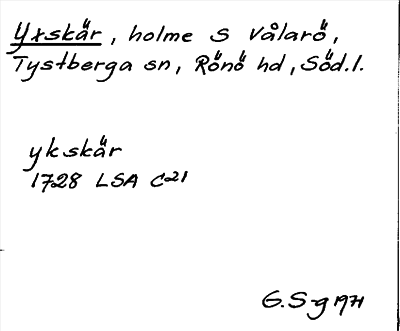 Yxskär, holme S Vålarö,
Tystberga sn, Rönö hd, Söd.l.
ykskär
1728 LSA C21
G.S-g 1971